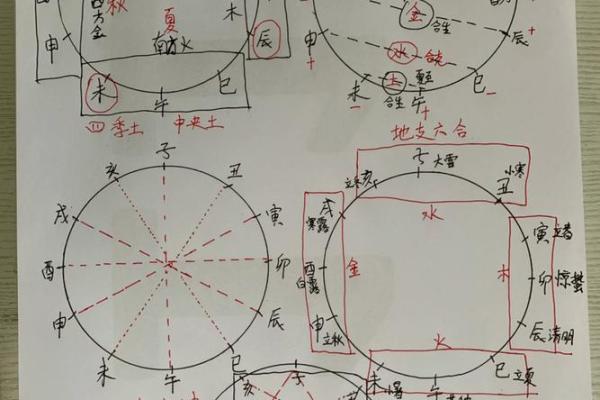 秋
夏
方金
南方火
未
申
辰
未
午
巳
四季土 中央土
金
合生
水
合克
土
合生
申
+
辰
+
未
-
午
+
巳
-
地支六合
子
丑
寅
卯
辰
巳
午
未
申
酉
戌
亥
子 大雪
丑 小寒
寅 立春
卯 惊蛰
辰 清明
巳 立夏
午
未
申 立秋
酉 白露
戌 寒露
亥
水
金
木
火
亥
子